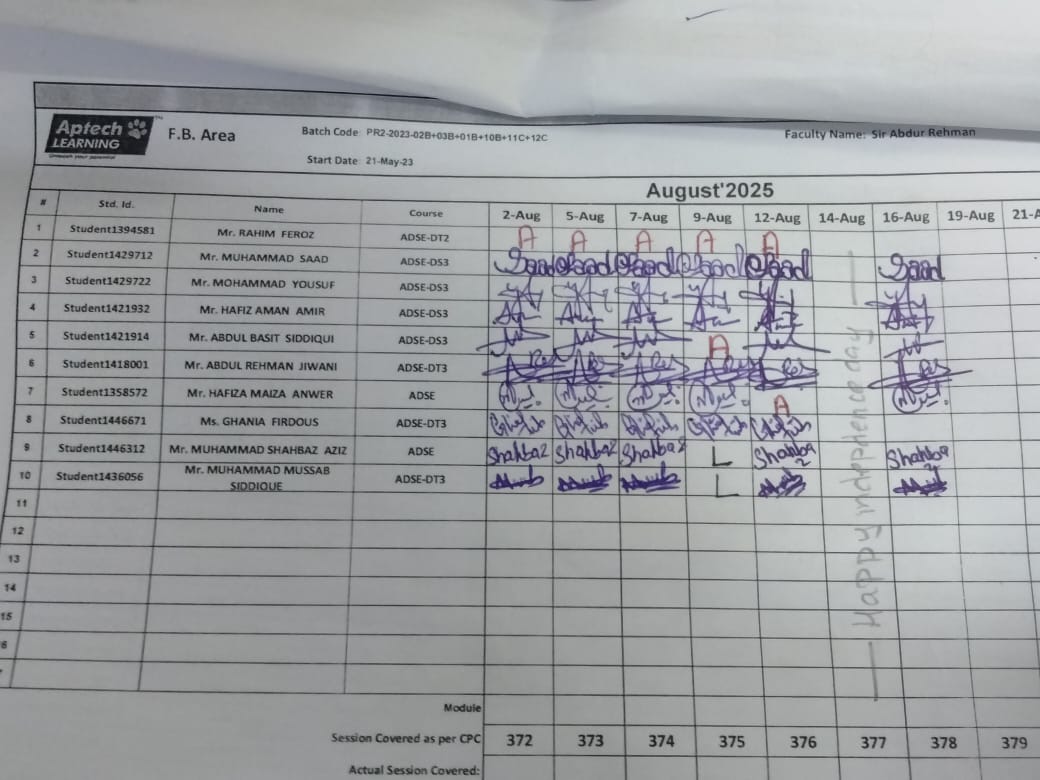 Aptech
LEARNING
Unleash your potential
F.B. Area
Batch Code: PR2-2023-02B+03B+01B+10B+11C+12C
Faculty Name: Sir Abdur Rehman
Start Date: 21-May-23
August'2025
# Std. Id. Name Course 2-Aug 5-Aug 7-Aug 9-Aug 12-Aug 14-Aug 16-Aug 19-Aug 21-A
1 Student1394581 Mr. RAHIM FEROZ ADSE-DT2 A A A A A
2 Student1429712 Mr. MUHAMMAD SAAD ADSE-DS3 Saad Saad Saad Saad Saad Saad
3 Student1429722 Mr. MOHAMMAD YOUSUF ADSE-DS3
4 Student1421932 Mr. HAFIZ AMAN AMIR ADSE-DS3
5 Student1421914 Mr. ABDUL BASIT SIDDIQUI ADSE-DS3 A
6 Student1418001 Mr. ABDUL REHMAN JIWANI ADSE-DT3
7 Student1358572 Mr. HAFIZA MAIZA ANWER ADSE A
8 Student1446671 Ms. GHANIA FIRDOUS ADSE-DT3
9 Student1446312 Mr. MUHAMMAD SHAHBAZ AZIZ ADSE Shahbaz Shahbaz Shahbaz L Shahbaz Shahbaz
10 Student1436056 Mr. MUHAMMAD MUSSAB SIDDIQUE ADSE-DT3 L
11
12
13
14
15
6
Happy independence day
Module
Session Covered as per CPC 372 373 374 375 376 377 378 379
Actual Session Covered: